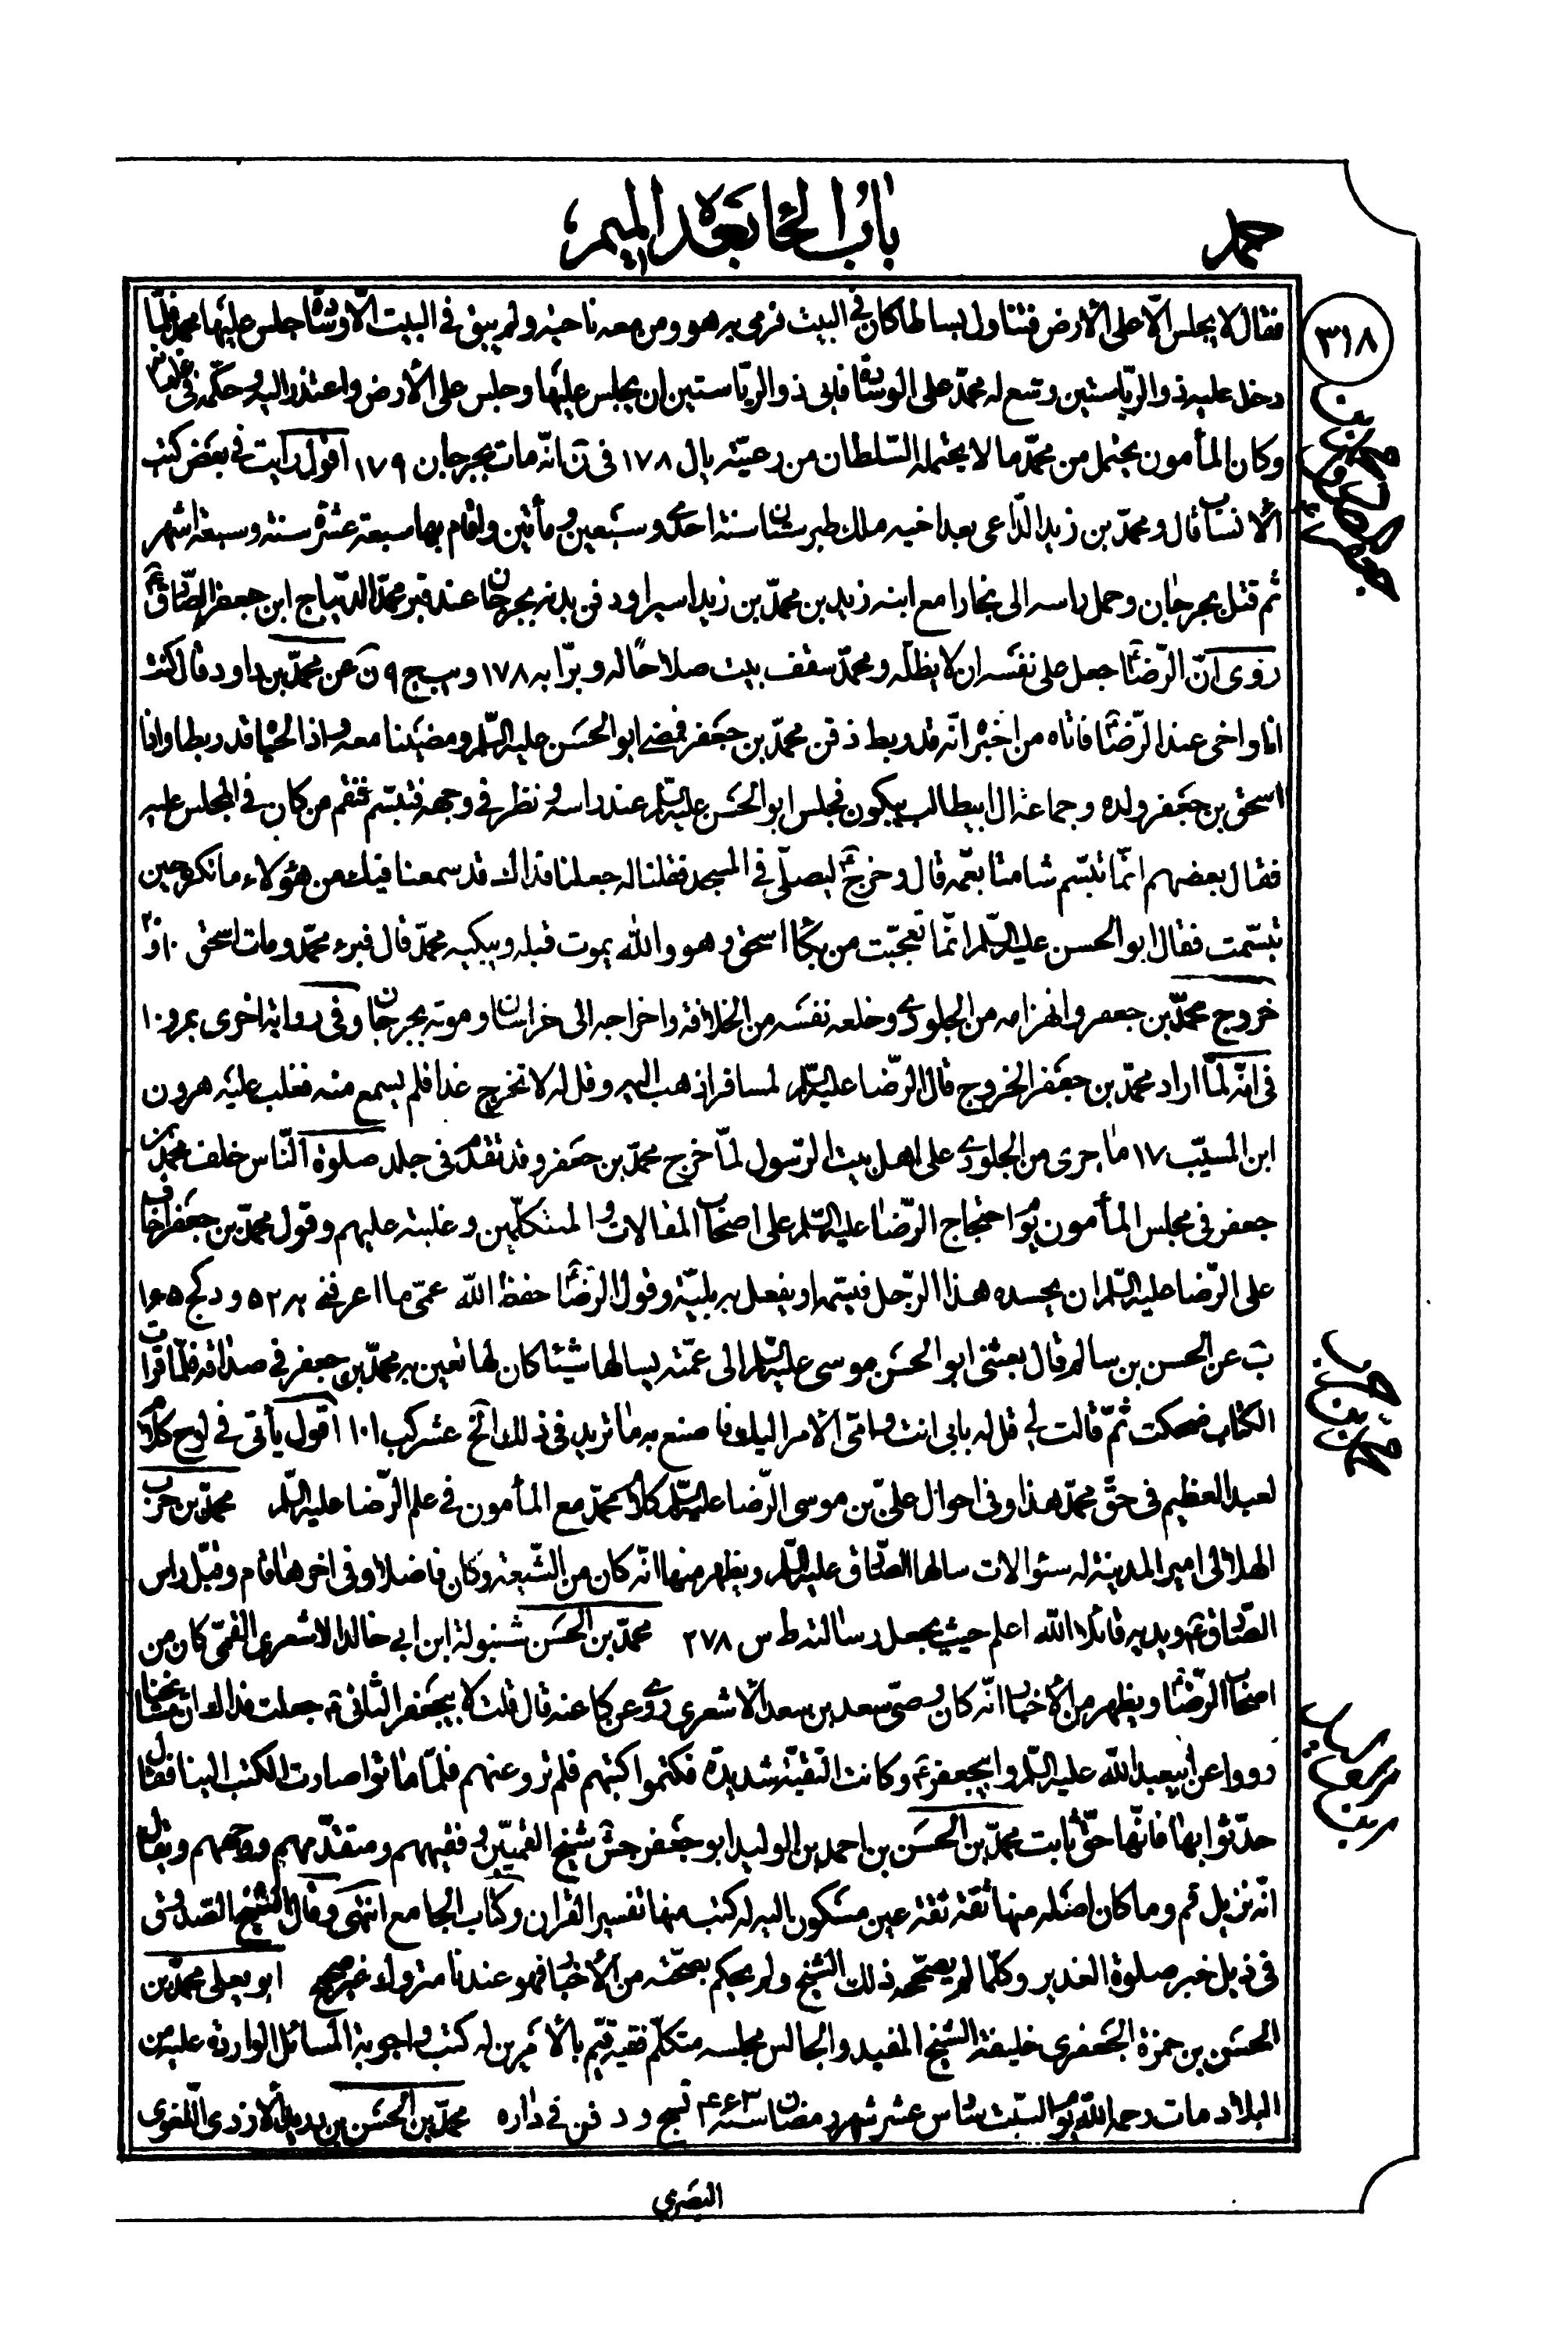 باب الحاء بعد الميم
حمد
٣١٨
فقال لا يجلس الّا على الأرض فتناول بساطا كان في البيت فرمى به هو ومن معه ناحية ولم يبق في البيت الّا وسادة جلس عليها محمد فلمّا
دخل عليه ذو الرّياستين وسّع له محمّد على الوسادة فابى ذو الرّياستين ان يجلس عليها وجلس على الأرض واعتذر اليه وحكّمه في غلمانه
وكان المأمون يحتمل من محمّد ما لا يحتمله السّلطان من رعيّته يال ١٧٨ في انّه مات بجرجان ١٧٩ اقول رايت في بعض كتب
الأنساب قال ومحمّد بن زيد الدّاعي بعد اخيه ملك طبرستان سنة احدى وسبعين ومأتين واقام بها سبعة عشرة سنة وسبعة اشهر
ثم قتل بجرجان وحمل راسه الى بخارا مع ابنه زيد بن محمّد بن زيد اسيرا ودفن بدنه بجرجان عند قبر محمّد الدّيباج ابن جعفر الصّادق
روى انّ الرّضا جعل على نفسه ان لا يظلّه ومحمّد سقف بيت صلاحًا له وبرّا به ١٧٨ ويب يج ٩ ن عن محمّد بن داود قال كنت
انا واخي عند الرّضا فاتاه من اخبره انّه قد ربط ذقن محمّد بن جعفر فمضى ابو الحسن عليه السّلم ومضينا معه واذا لحياه قد ربطا واذا
اسحق بن جعفر وولده وجماعة ال ابيطالب يبكون فجلس ابو الحسن عليه السّلم عند راسه ونظر في وجهه فتبسّم فنقم من كان في المجلس عليه
فقال بعضهم انّما تبسّم شامتا بعمّه قال وخرج ليصلّي في المسجد فقلنا له جعلنا فداك قد سمعنا فيك من هؤلاء ما نكره حين
تبسّمت فقال ابو الحسن عليه السّلم انّما تعجّبت من بكاء اسحق وهو والله يموت قبله ويبكيه محمّد قال فبرء محمّد ومات اسحق ١٠
خروج محمّد بن جعفر وانهزامه من الجلودي وخلعه نفسه من الخلافة واخراجه الى خراسان وموته بجرجان وفي رواية اخرى بمرو ١٠
في انّه لمّا اراد محمّد بن جعفر الخروج قال الرّضا عليه السّلم لمسافر اذهب اليه وقل له لا تخرج غدا فلم يسمع منه فغلب عليه هرون
ابن المسيّب ١٧ ما جرى من الجلودي على اهل بيت الرّسول لمّا خرج محمّد بن جعفر وقد تقدّم في جلد صلوة النّاس خلف محمّد بن
جعفر في مجلس المأمون يوم احتجاج الرّضا عليه السّلم على اصحاب المقالات والمتكلّمين وغلبته عليهم وقول محمّد بن جعفر اخاف
على الرّضا عليه السّلم ان يحسده هذا الرّجل فيسمّه او يفعل به بليّة وقول الرّضا حفظ الله عمّي ما اعرفني به ٥٢ ود كج ١٦٥
ب عن الحسن بن سالم قال بعثني ابو الحسن موسى عليه السّلم الى عمّته يسالها شيئا كان لها تعين به محمّد بن جعفر في صداقه فلمّا قرأت
الكتاب ضحكت ثمّ قالت لي قل له بابي انت وامّي الأمر اليك فاصنع به ما تريد في ذلك الخ عشر كب ١٠١ اقول يأتي في لوح كلام
لعبد العظيم في حقّ محمّد هذا وفي احوال عليّ بن موسى الرّضا عليه السّلم كلام محمّد مع المأمون في علم الرّضا عليه السّلم محمّد بن حرب
الهلالي امير المدينة له سئوالات سالها الصّادق عليه السّلم ويظهر منها انّه كان من الشّيعة وكان فاضلا وفي اخرها قام وقبّل راس
الصّادق ويديه قائلا الله اعلم حيث يجعل رسالته ط س ٢٧٨ محمّد بن الحسن شنبولة ابن ابي خالد الاشعري القمّي كان من
اصحاب الرّضا ويظهر من الأخبار انّه كان وصيّ سعد بن سعد الأشعري روى كا عنه قال قلت لابيجعفر الثاني جعلت فداك ان مشايخنا
رووا عن ابيعبد الله عليه السّلم وابيجعفر وكانت التقيّة شديدة فكتموا كتبهم فلم ترو عنهم فلمّا ماتوا صارت الكتب الينا فقال
حدّثوا بها فانّها حقّ ثابت محمّد بن الحسن بن احمد بن الوليد ابو جعفر جش شيخ القميّين وفقيههم ومتقدّمهم ووجههم ويقال
انّه نزيل قم وما كان اصله منها ثقة ثقة عين مسكون اليه له كتب منها تفسير القران وكتاب الجامع انتهى وقال الشيخ الصّدوق
في ذيل خبر صلوة الغدير وكلّما لم يصحّحه ذلك الشيخ ولم يحكم بصحّته من الأخبار فهو عندنا متروك غير صحيح ابو يعلى محمّد بن
الحسن بن حمزة الجعفري خليفة الشيخ المفيد والجالس مجلسه متكلّم فقيه قيّم بالأمرين له كتب واجوبة المسائل الواردة عليه من
البلاد مات رحمه الله يوم السّبت سادس عشر شهر رمضان سنة ٤٦٣ تسج ودفن في داره محمّد بن الحسن بن دريد الأزدي اللّغوي
محمّد بن حرب
البصري